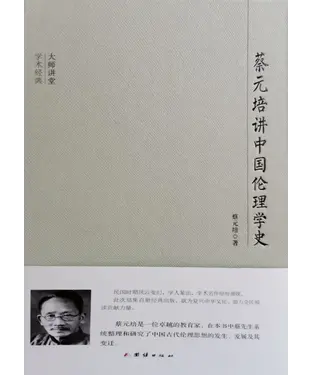 大师讲堂
学术经典
蔡元培讲中国伦理学史
蔡元培 著
蔡元培是一位卓越的教育家，在本书中蔡先生系
统整理和研究了中国古代伦理思想的发生、发展及其
变迁。
团结出版社